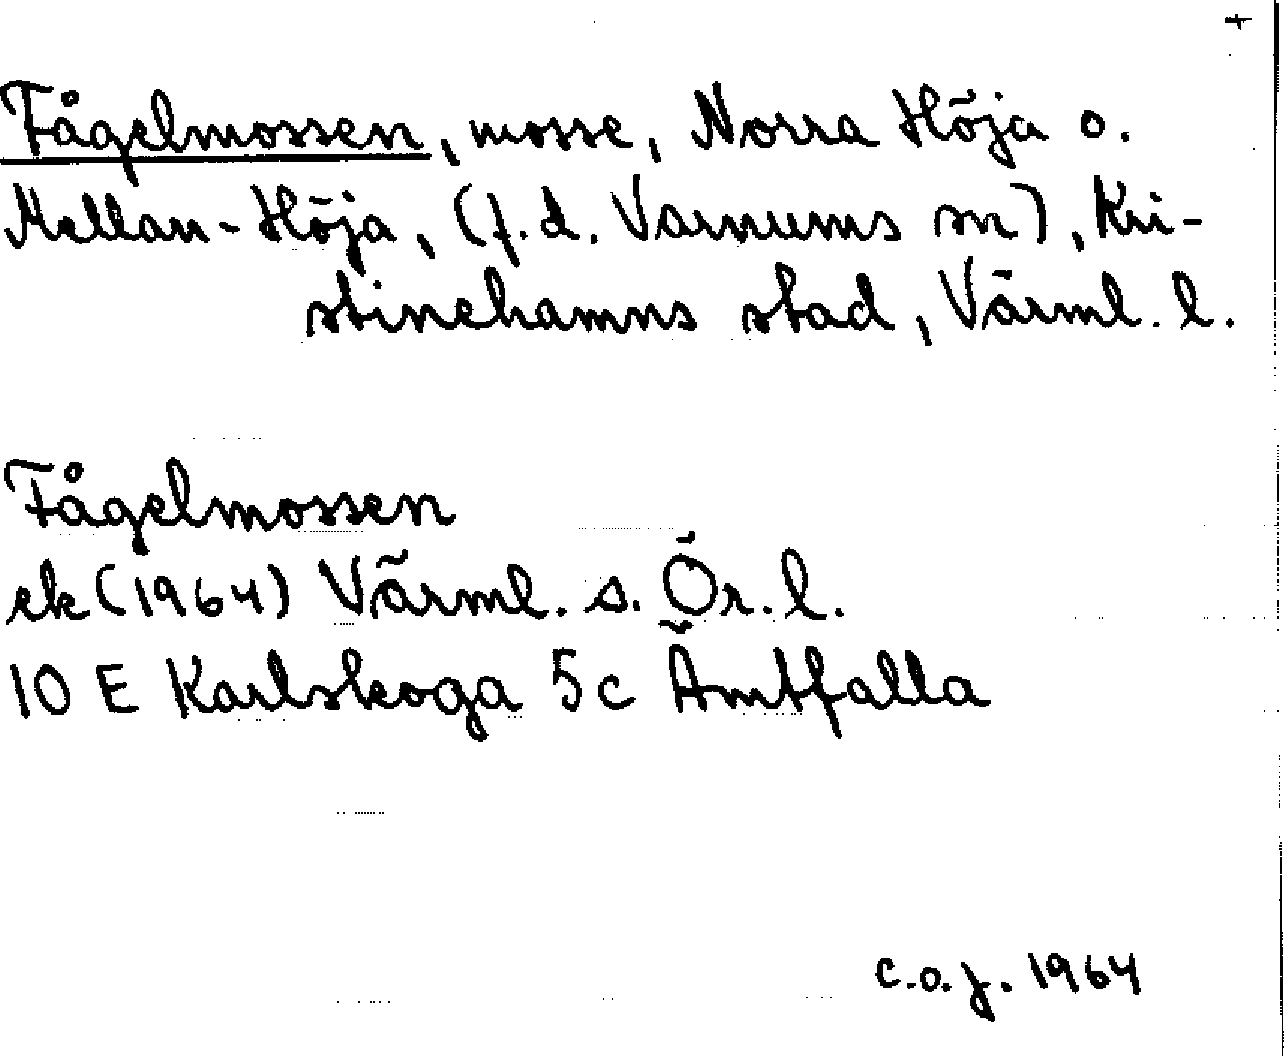 +
Fågelmossen, mosse, Norra Höja o.
Mellan-Höja, (f.d. Varnums sn), Kri-
stinehamns stad, Värml. l.
Fågelmossen
ek (1964) Värml. s. Ör. l.
10 E Karlskoga 5c Ämtfalla
C.o.j. 1964